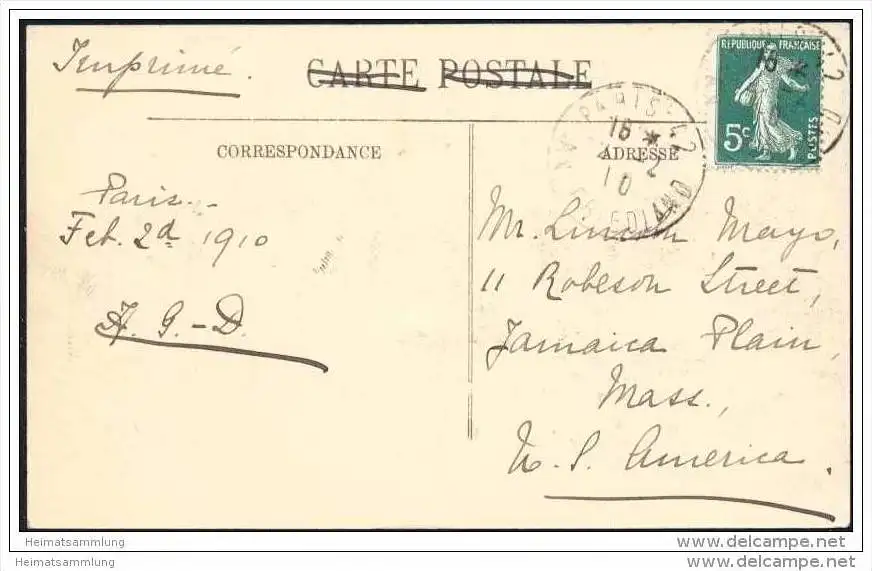 Imprimé.
CARTE POSTALE
REPUBLIQUE FRANÇAISE
5c
POSTES
PARIS
18 *
2
10
CORRESPONDANCE
ADRESSE
Paris.
Feb. 2d 1910
A. G.-D.
Mr. Lincoln Mayo,
11 Robeson Street,
Jamaica Plain,
Mass.,
U. S. America.
Heimatsammlung
Heimatsammlung
www.delcampe.net
www.delcampe.net